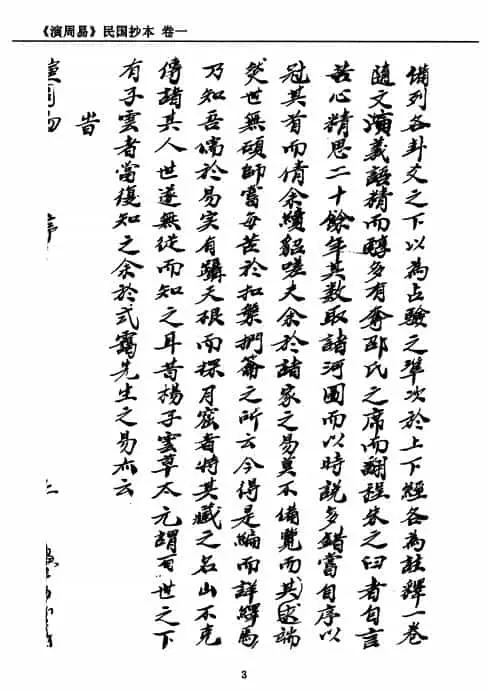 《演周易》民国抄本 卷一
備列各卦爻之下以為占驗之準次於上下經各為註釋一卷
隨文演義語精而醇多有奪邵氏之席而翻程朱之臼者自言
苦心精思二十餘年其數取諸河圖而以時說多錯嘗自序以
冠其首而倩余續貂嗟夫余於諸家之易莫不備覽而其端
癸世無碩師嘗每苦於扣槃捫籥之所云今得是編而詳繹焉
乃知吾儒於易实有躡天根而探月窟者將其藏之名山不克
傳諸其人世遂無從而知之耳昔楊子雲草太元謂百世之下
有子雲者當復知之余於式靄先生之易亦云
旹
演周易 序
3